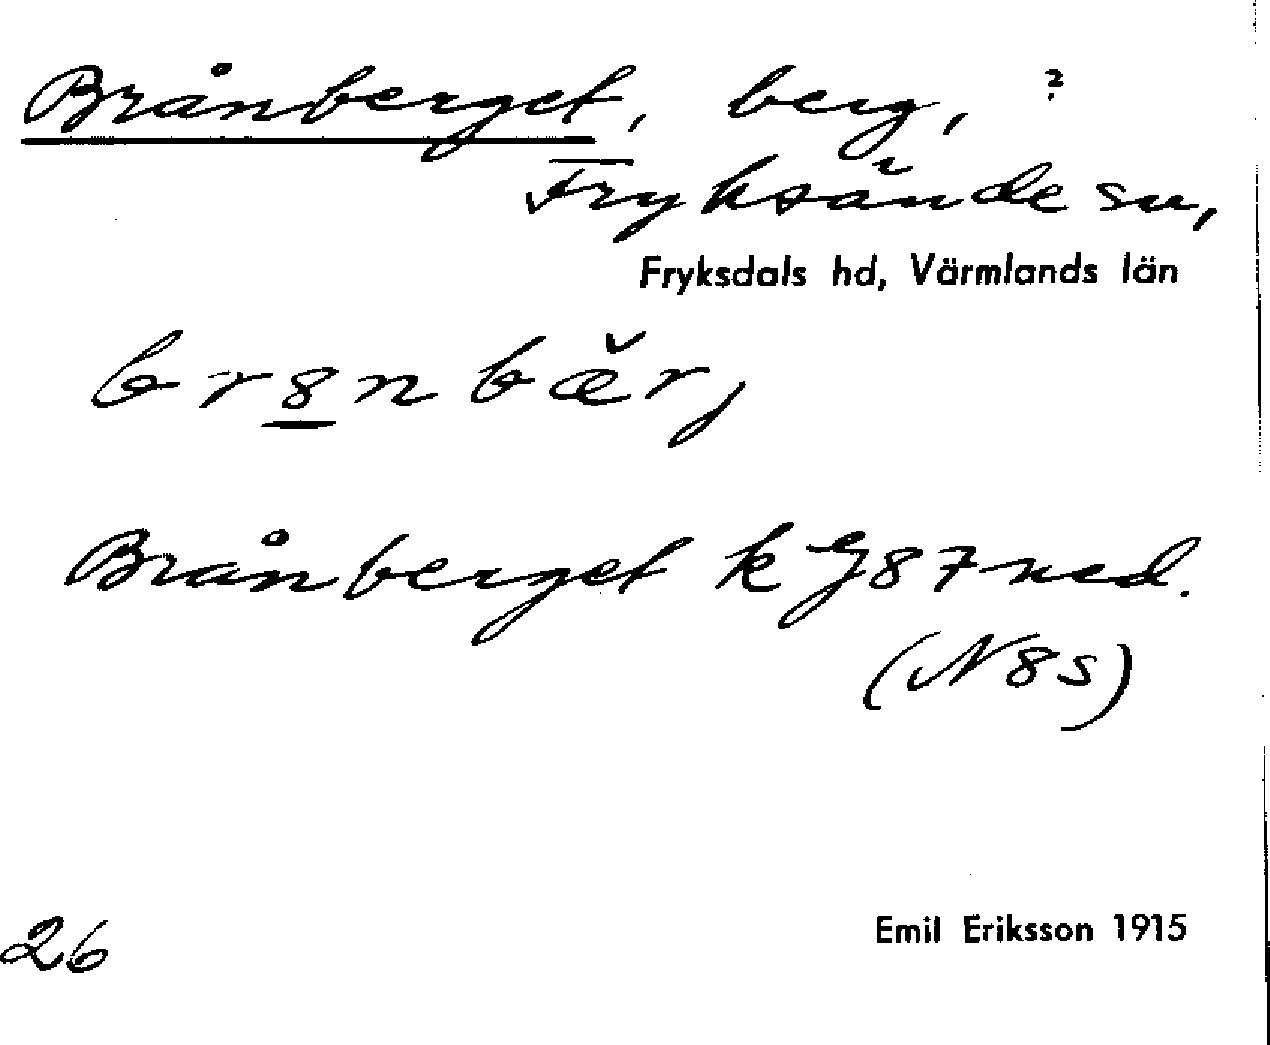 Brånberget, berg, ?
Fryksände sn,
Fryksdals hd, Värmlands län
br8n bær,
Brånberget k G87 ned.
(N8s)
26
Emil Eriksson 1915